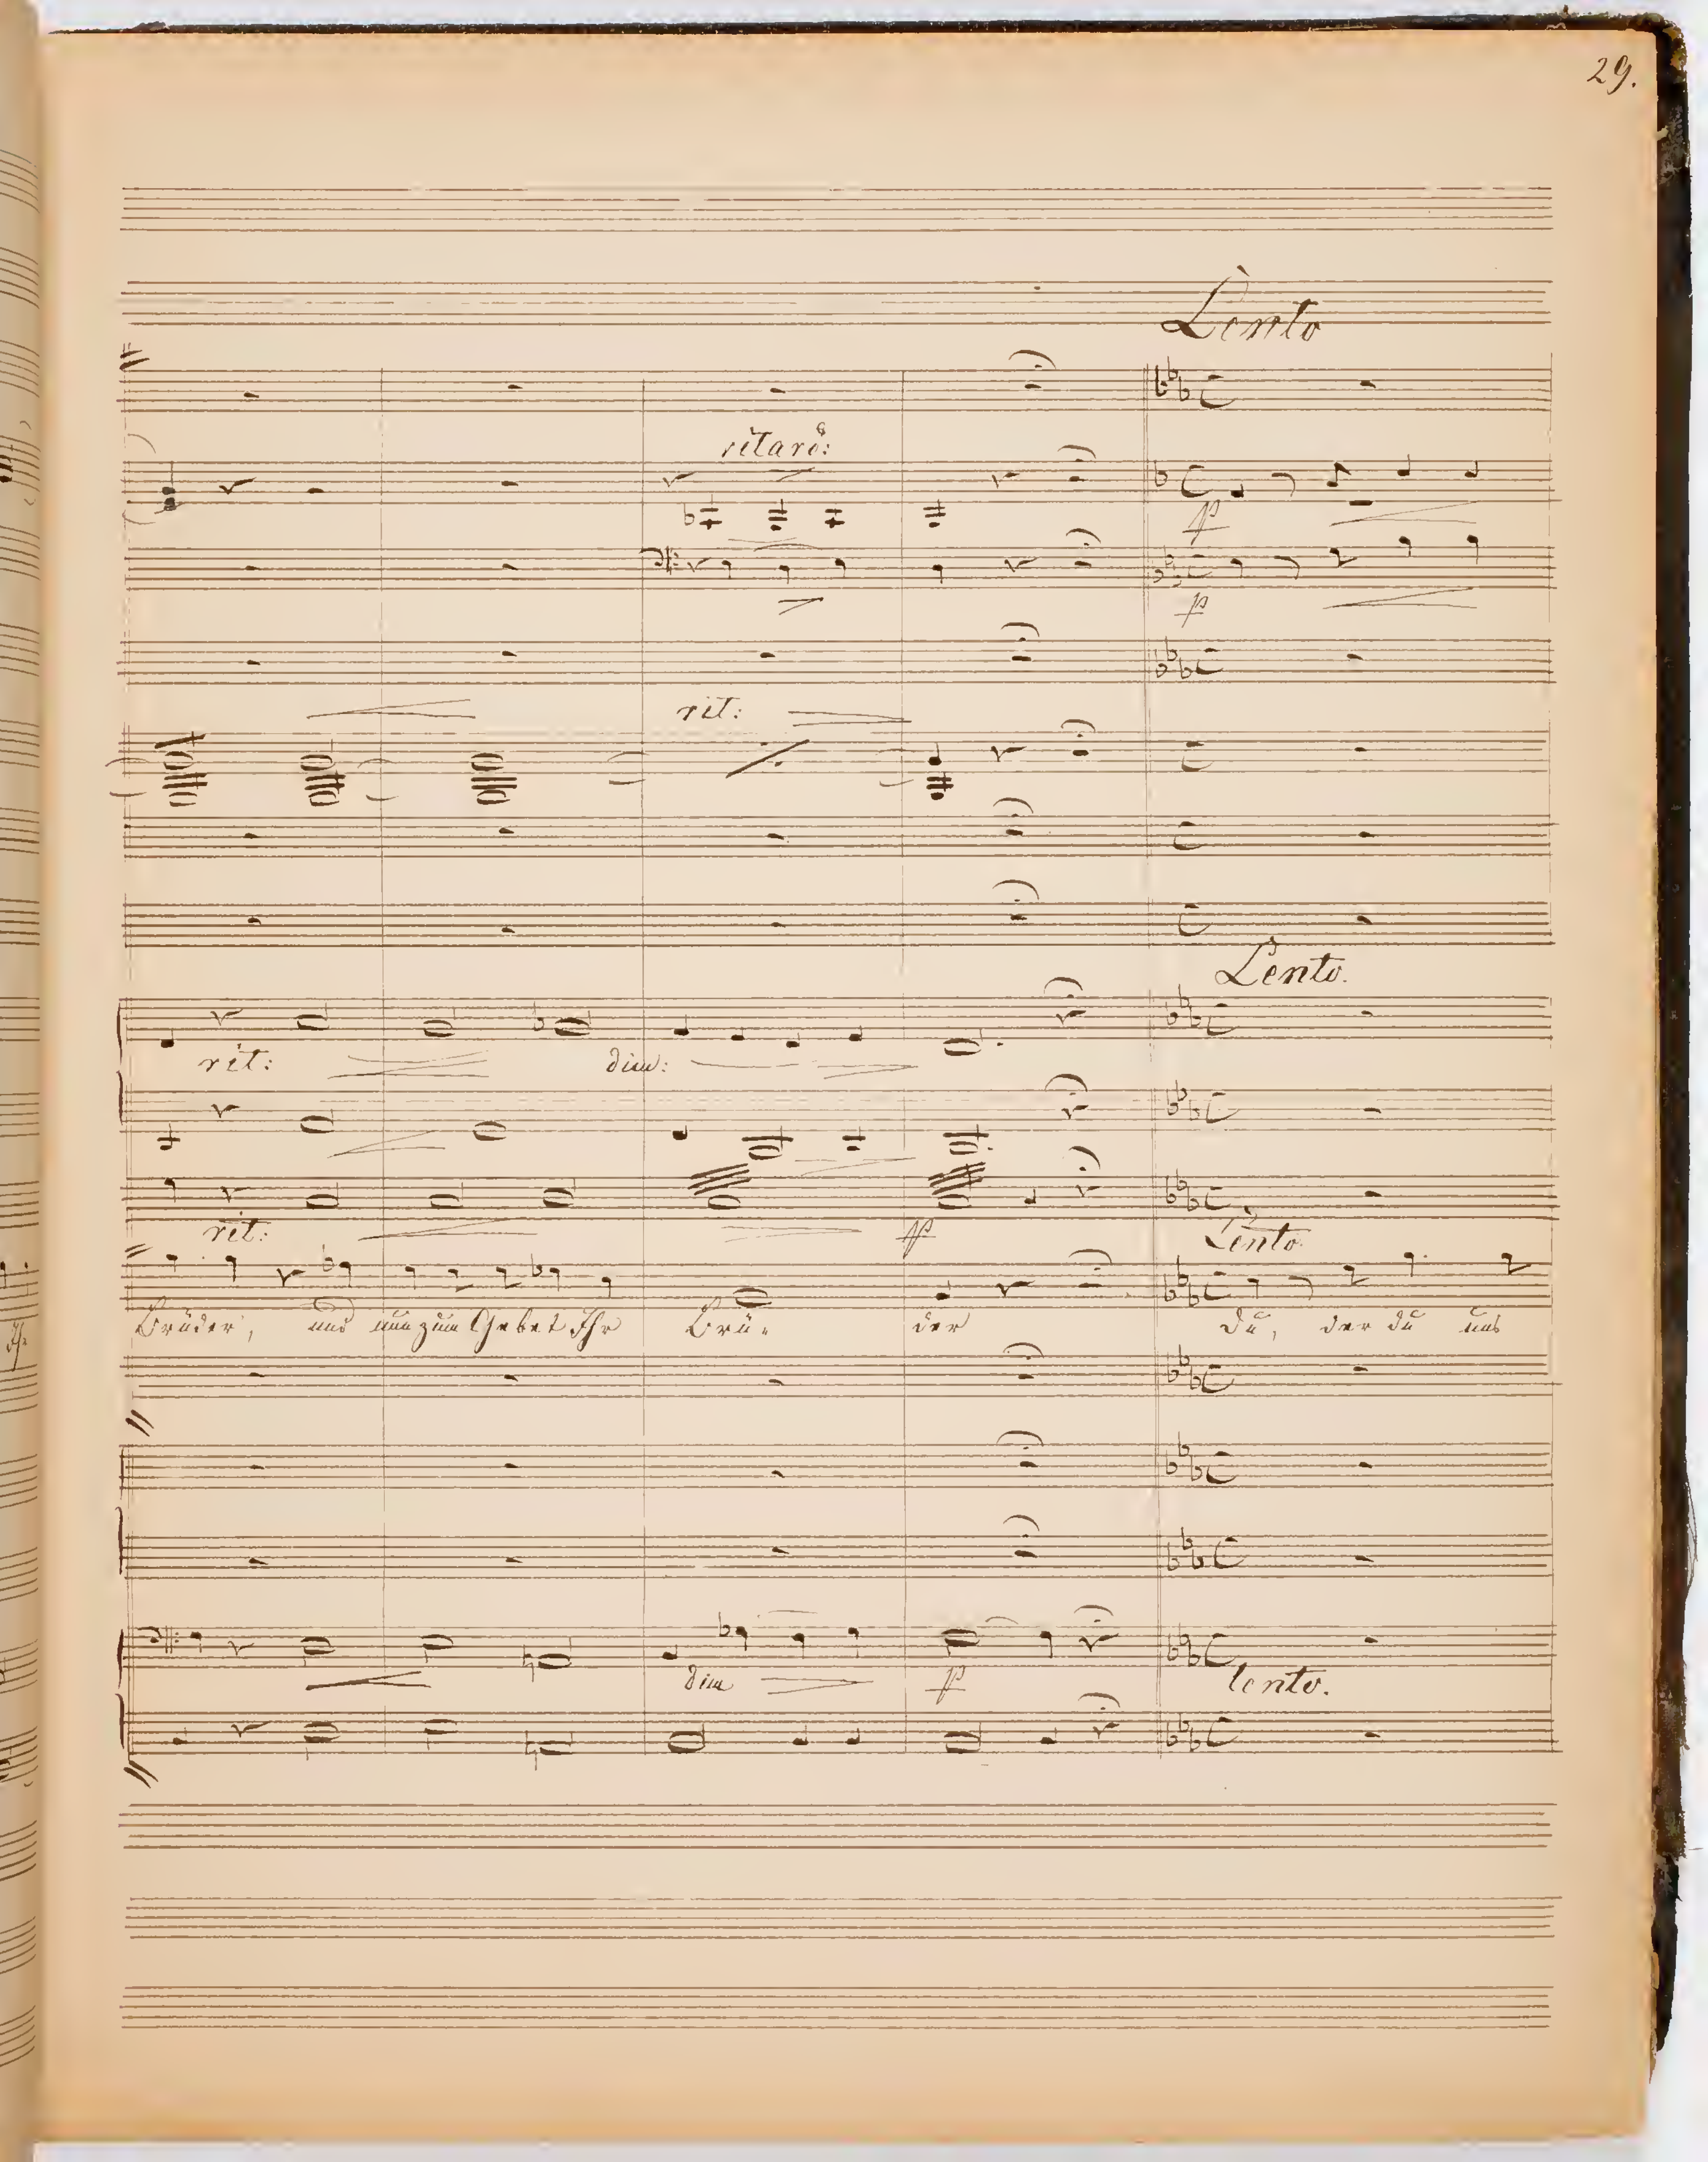 29.
Lento
ritard:
p
p
rit:
Lento.
rit: dim:
rit: p Lento
Brüder, und nun zum Gebet Ihr Brü- der Du, der du uns
dim p lento.